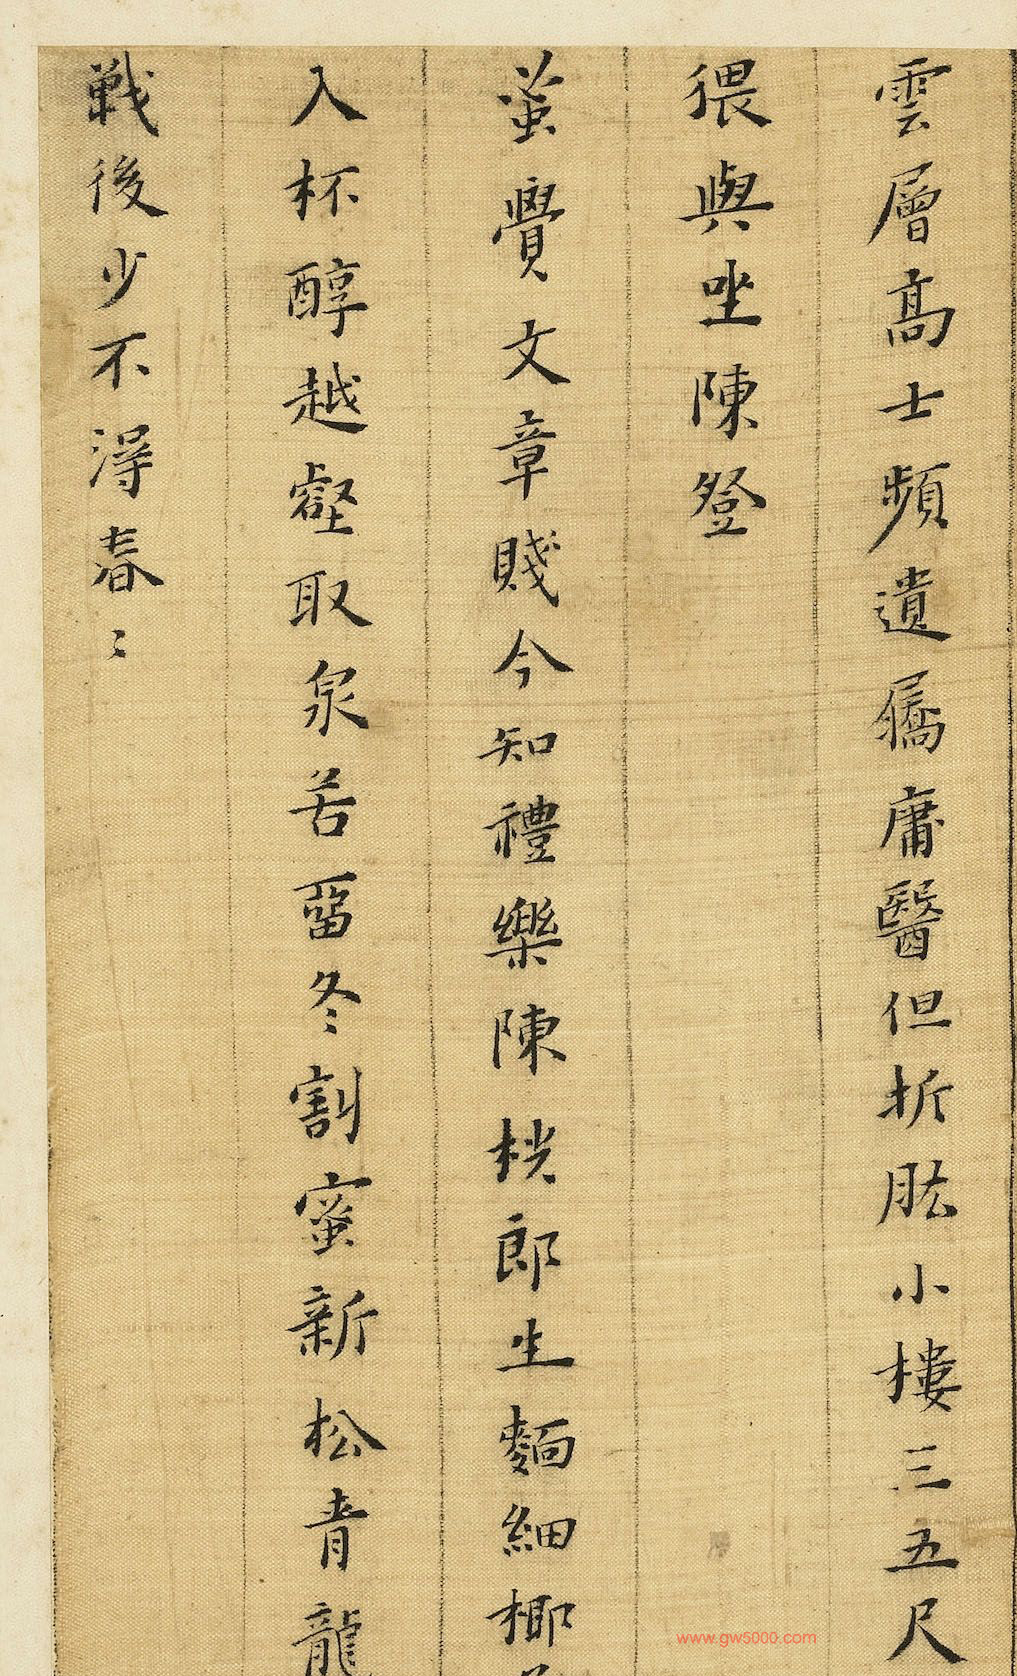 雲層高士頻遺屩庸醫但折肱小樓三五尺
猥與坐陳登
蚤覺文章賤今知禮樂陳桄郎生麵細椰
入杯醇越壑取泉苦畱冬割蜜新松青龍
戰後少不得春〻
www.gw5000.com